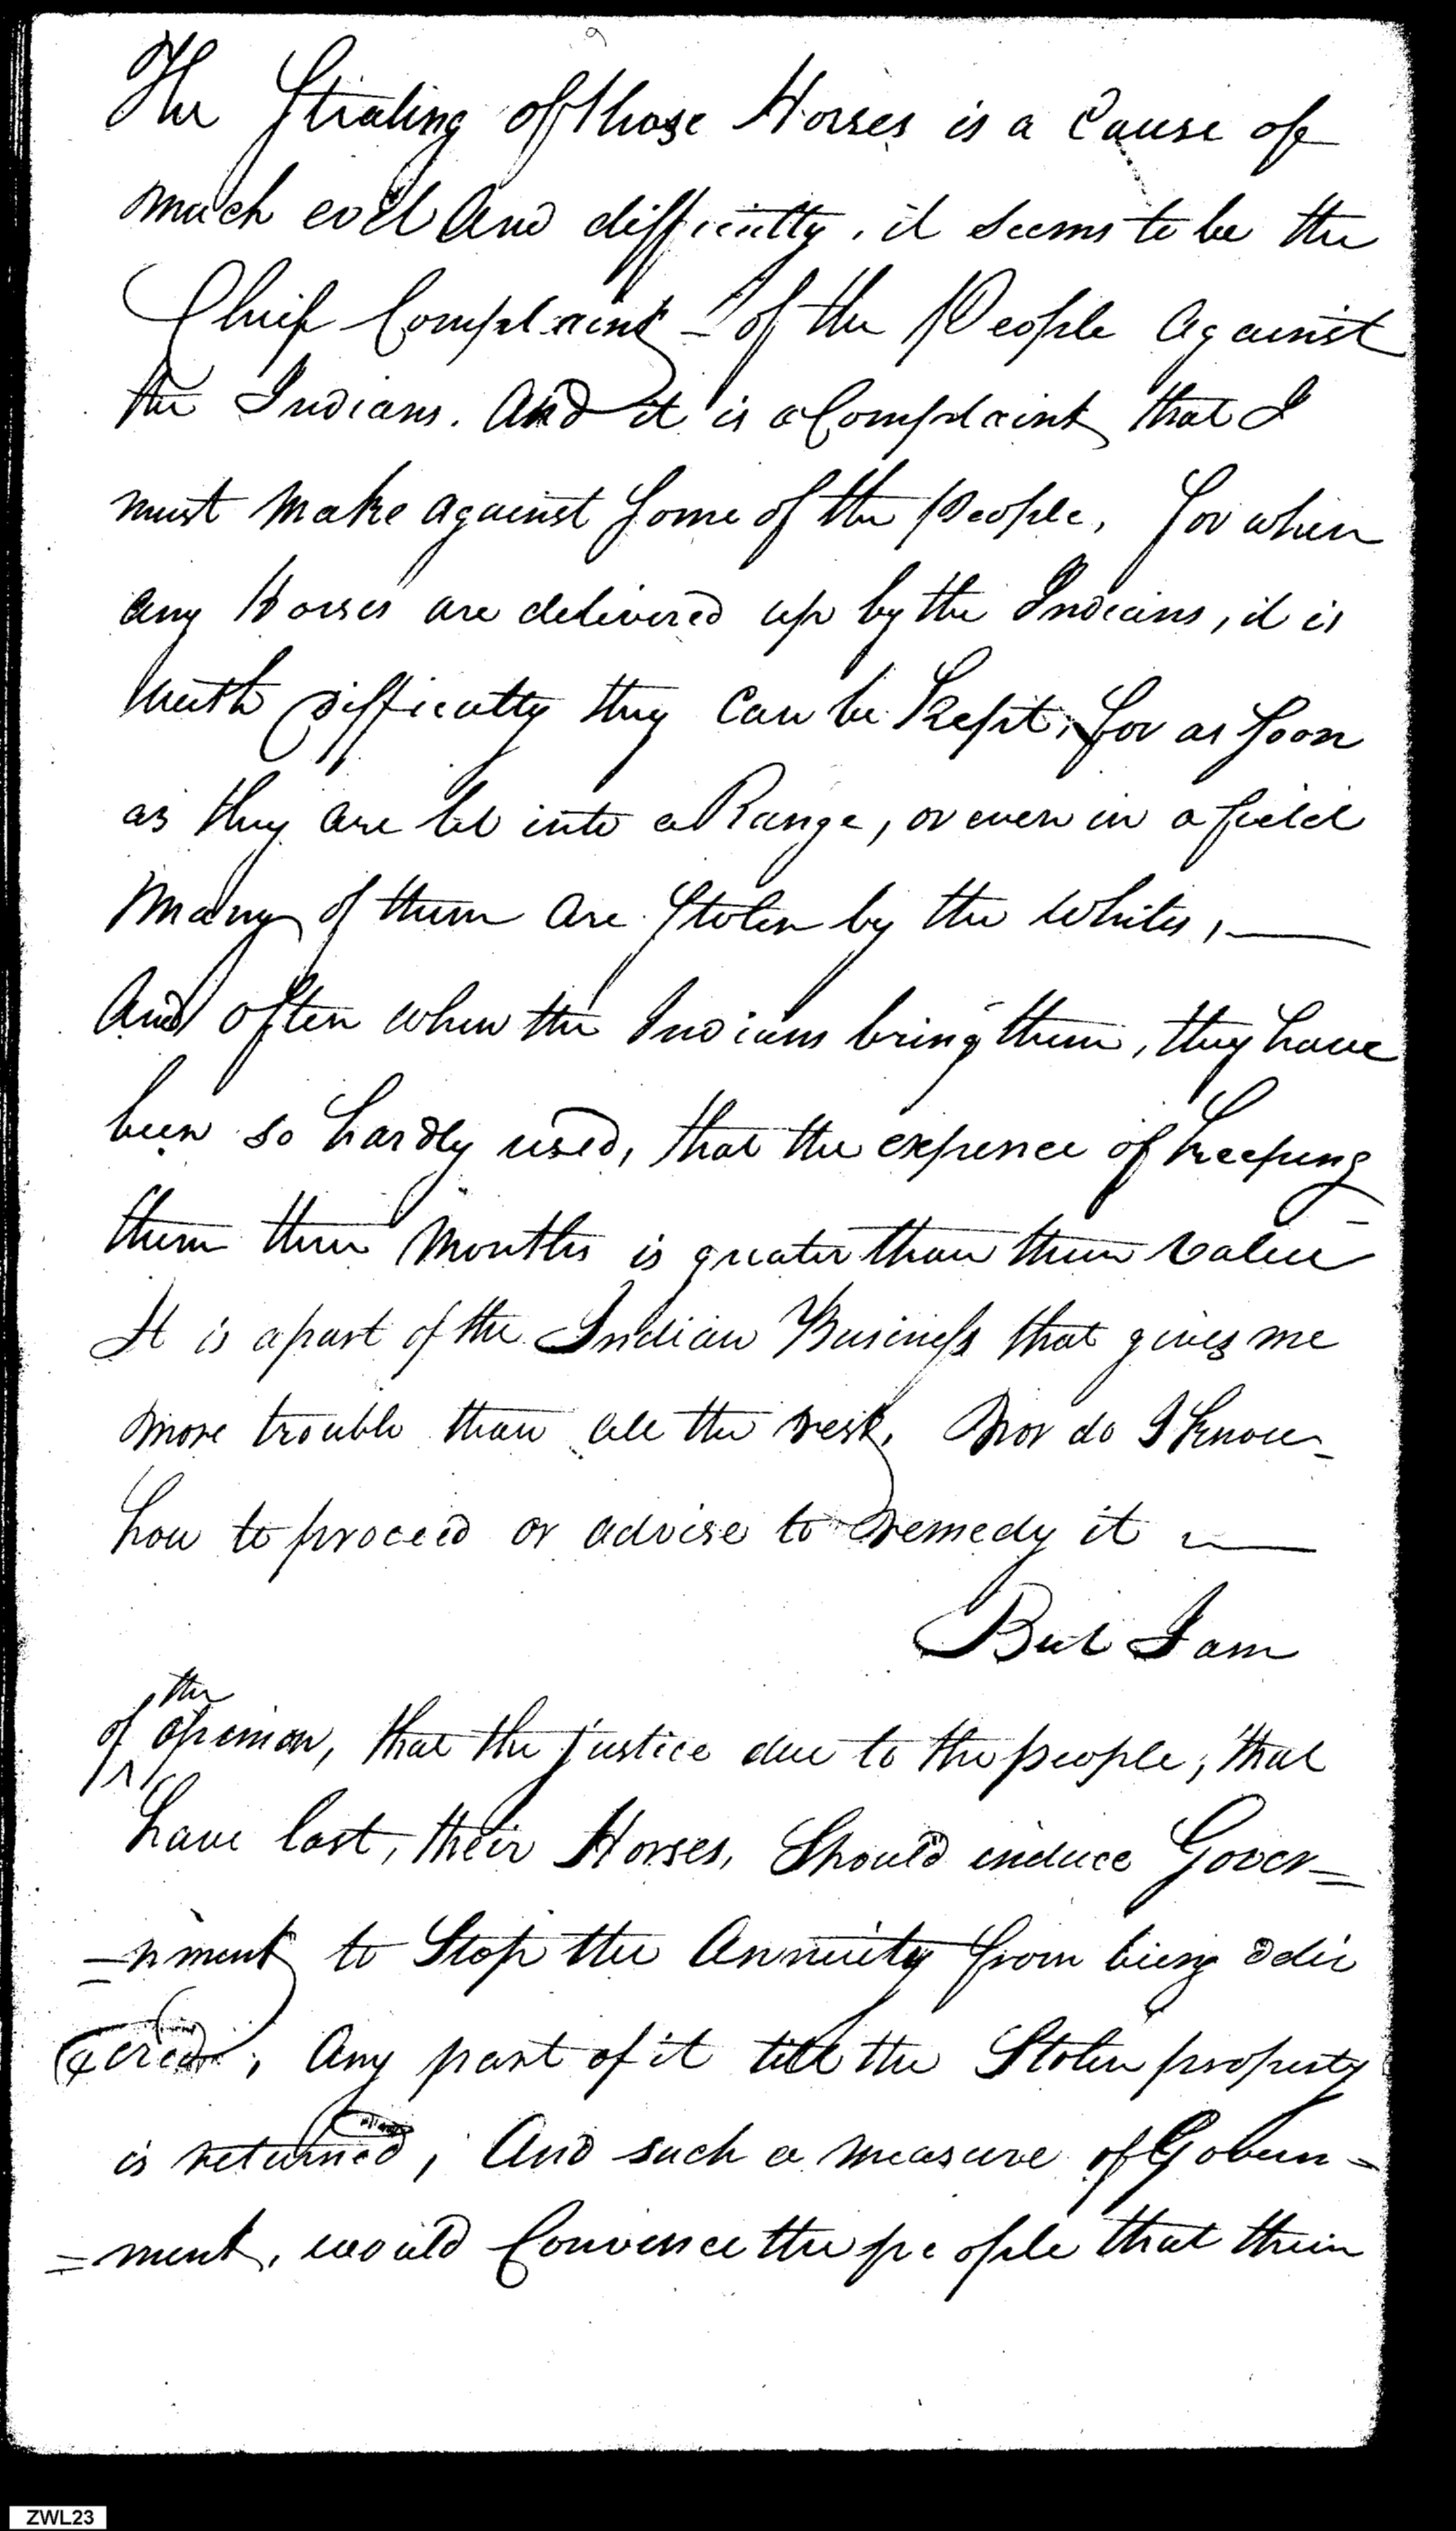 The Stealing of those Horses is a Cause of
much evil and difficulty, it seems to be the
Chief Complaint - of the People against
the Indians. And it is a Complaint that I
must make against Some of the People, for when
any Horses are delivered up by the Indians, it is
with difficulty they can be Kept, for as Soon
as they are let into a Range, or even in a field
many of them are Stolen by the Whites, —
And often when the Indians bring them, they have
been so hardly used, that the expence of keeping
them three months is greater than their value
It is a part of the Indian Business that gives me
more trouble than all the rest, Nor do I know
how to proceed or advise to remedy it —
But I am
the
of opinion, that the justice due to the people, that
have lost, their Horses, Should induce Gover=
=nment to Stop the Annuity from being deli
vered, any part of it till the Stolen property
is returned; And such a measure of Govern=
=ment, would Convence the people that their
ZWL23